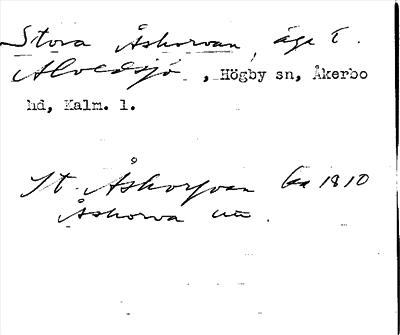 Stora Åskorvan, äga t.
Alvedsjö, Högby sn, Åkerbo
hd, Kalm. l.
St. Åskorvan ca 1810
Åskorva